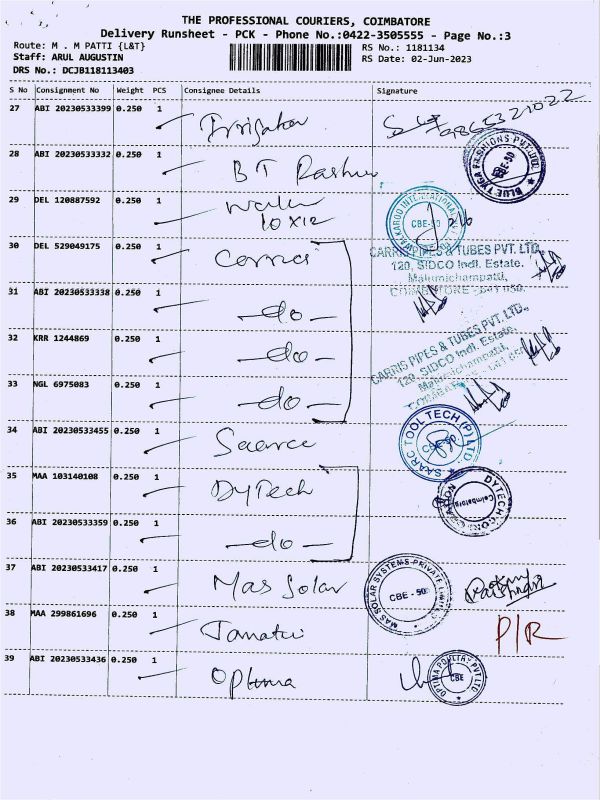 THE PROFESSIONAL COURIERS, COIMBATORE
Delivery Runsheet - PCK - Phone No.:0422-3505555 - Page No.:3
Route: M . M PATTI {L&T} RS No.: 1181134
Staff: ARUL AUGUSTIN RS Date: 02-Jun-2023
DRS No.: DCJB118113403
S No Consignment No Weight PCS Consignee Details Signature
27 ABI 20230533399 0.250 1
28 ABI 20230533332 0.250 1 BT BLUE TYGA FASHIONS PVT. LTD CBE-50
29 DEL 120887592 0.250 1 10x12 INTERNATIONAL CBE-50
30 DEL 529049175 0.250 1 Carris CARRIS PIPES & TUBES PVT. LTD.
120, SIDCO Indl. Estate.
Malumichampatti,
COIMBATORE - 641 050.
31 ABI 20230533338 0.250 1 -do-
32 KRR 1244869 0.250 1 -do- CARRIS PIPES & TUBES PVT. LTD.,
120, SIDCO Indl. Estate.
Malumichampatti,
33 NGL 6975083 0.250 1 -do-
34 ABI 20230533455 0.250 1 SAARC TOOL TECH (P) LTD. CBE-50
35 MAA 103140108 0.250 1 DyTech DYTECH Coimbatore
36 ABI 20230533359 0.250 1 -do-
37 ABI 20230533417 0.250 1 Mas Solar MAS SOLAR SYSTEMS PRIVATE LIMITED CBE - 50
38 MAA 299861696 0.250 1 P/R
39 ABI 20230533436 0.250 1 Optima OPTIMA POULTRY PVT LTD CBE